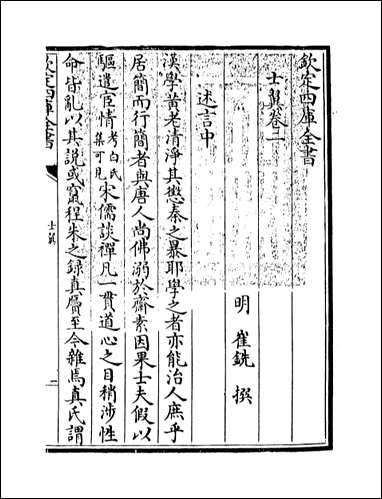 欽定四庫全書
士翼卷二
明 崔銑 撰
述言中
漢學黄老清淨其懲秦之暴耶學之者亦能治人庶乎
居簡而行簡者與唐人尚佛溺於齋素因果士夫假以
驅遣宦情考白氏集可見宋儒談禪凡一貫道心之目稍涉性
命皆亂以其説或竄程朱之録真贗至今雜焉真氏謂
欽定四庫全書
士翼
二